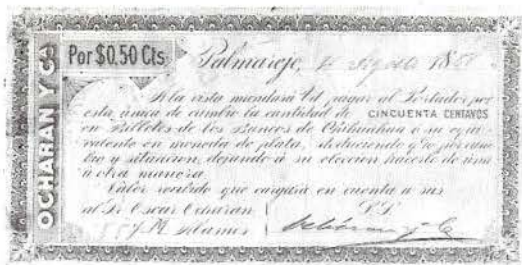 OCHARAN Y Cª
Por $0.50 Cts
Palmarejo, Agosto 188
A la vista mandará Vd pagar al Portador por
esta única de cambio la cantidad de CINCUENTA CENTAVOS
en Billetes de los Bancos de Chihuahua ó su equi
valente en moneda de plata, deduciendo % por cam
bio y situacion, dejando á su eleccion hacerlo de una
á otra manera.
Valor recibido que cargará en cuenta a sus
al Sr Oscar Ocharan P.P.